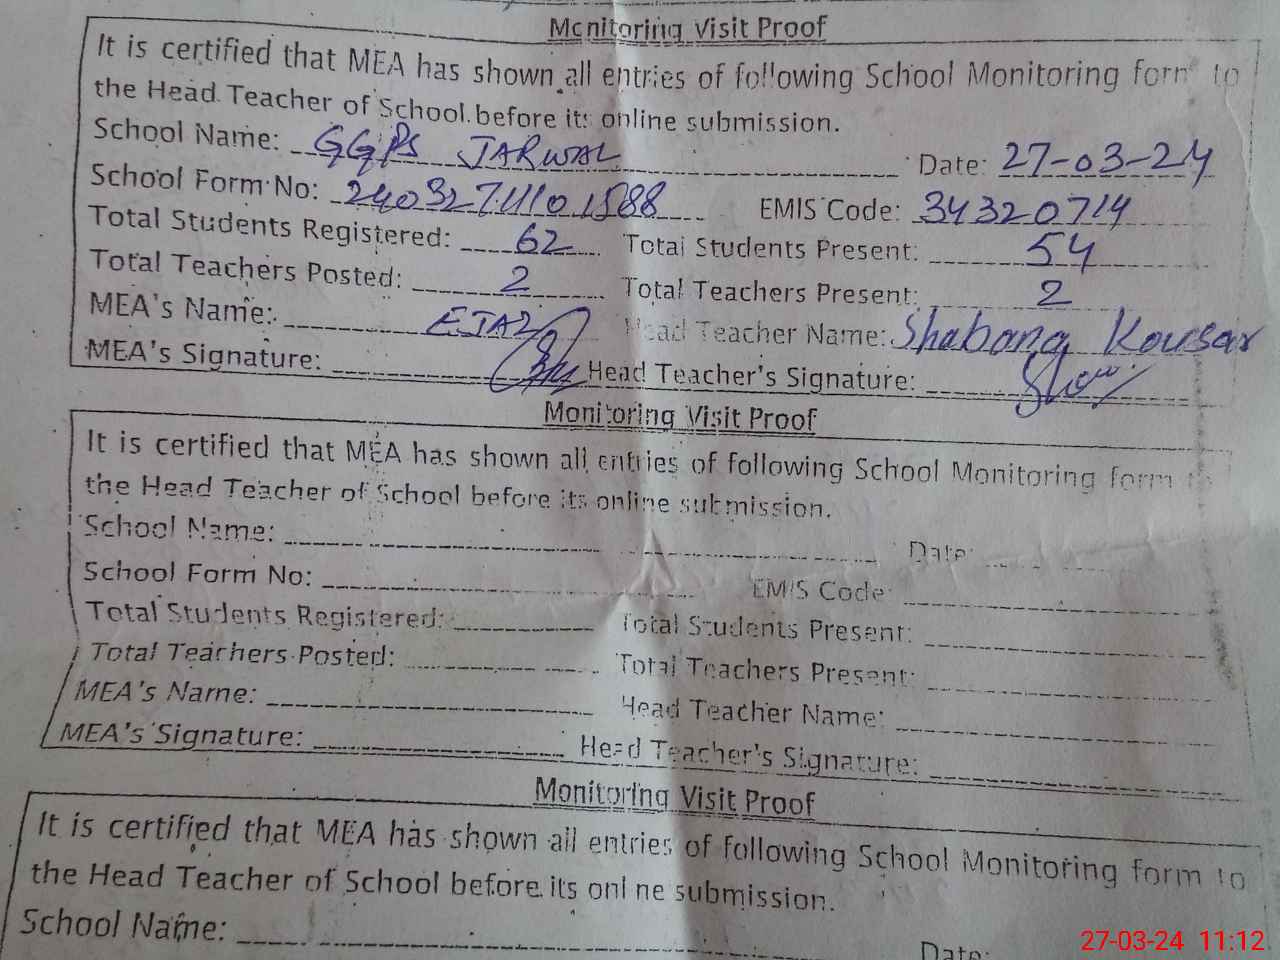 Monitoring Visit Proof
It is certified that MEA has shown all entries of following School Monitoring form to
the Head Teacher of School before its online submission.
School Name: GGPS JARWAL Date: 27-03-24
School Form No: EMIS Code: 34320714
Total Students Registered: 62 Total Students Present: 54
Total Teachers Posted: 2 Total Teachers Present: 2
MEA's Name: EJAZ Head Teacher Name: Shabana Kousar
MEA's Signature: Head Teacher's Signature:
Monitoring Visit Proof
It is certified that MEA has shown all entries of following School Monitoring form to
the Head Teacher of School before its online submission.
School Name: Date:
School Form No: EMIS Code:
Total Students Registered: Total Students Present:
Total Teachers Posted: Total Teachers Present:
MEA's Name: Head Teacher Name:
MEA's Signature: Head Teacher's Signature:
Monitoring Visit Proof
It is certified that MEA has shown all entries of following School Monitoring form to
the Head Teacher of School before its online submission.
School Name: Date:
27-03-24 11:12